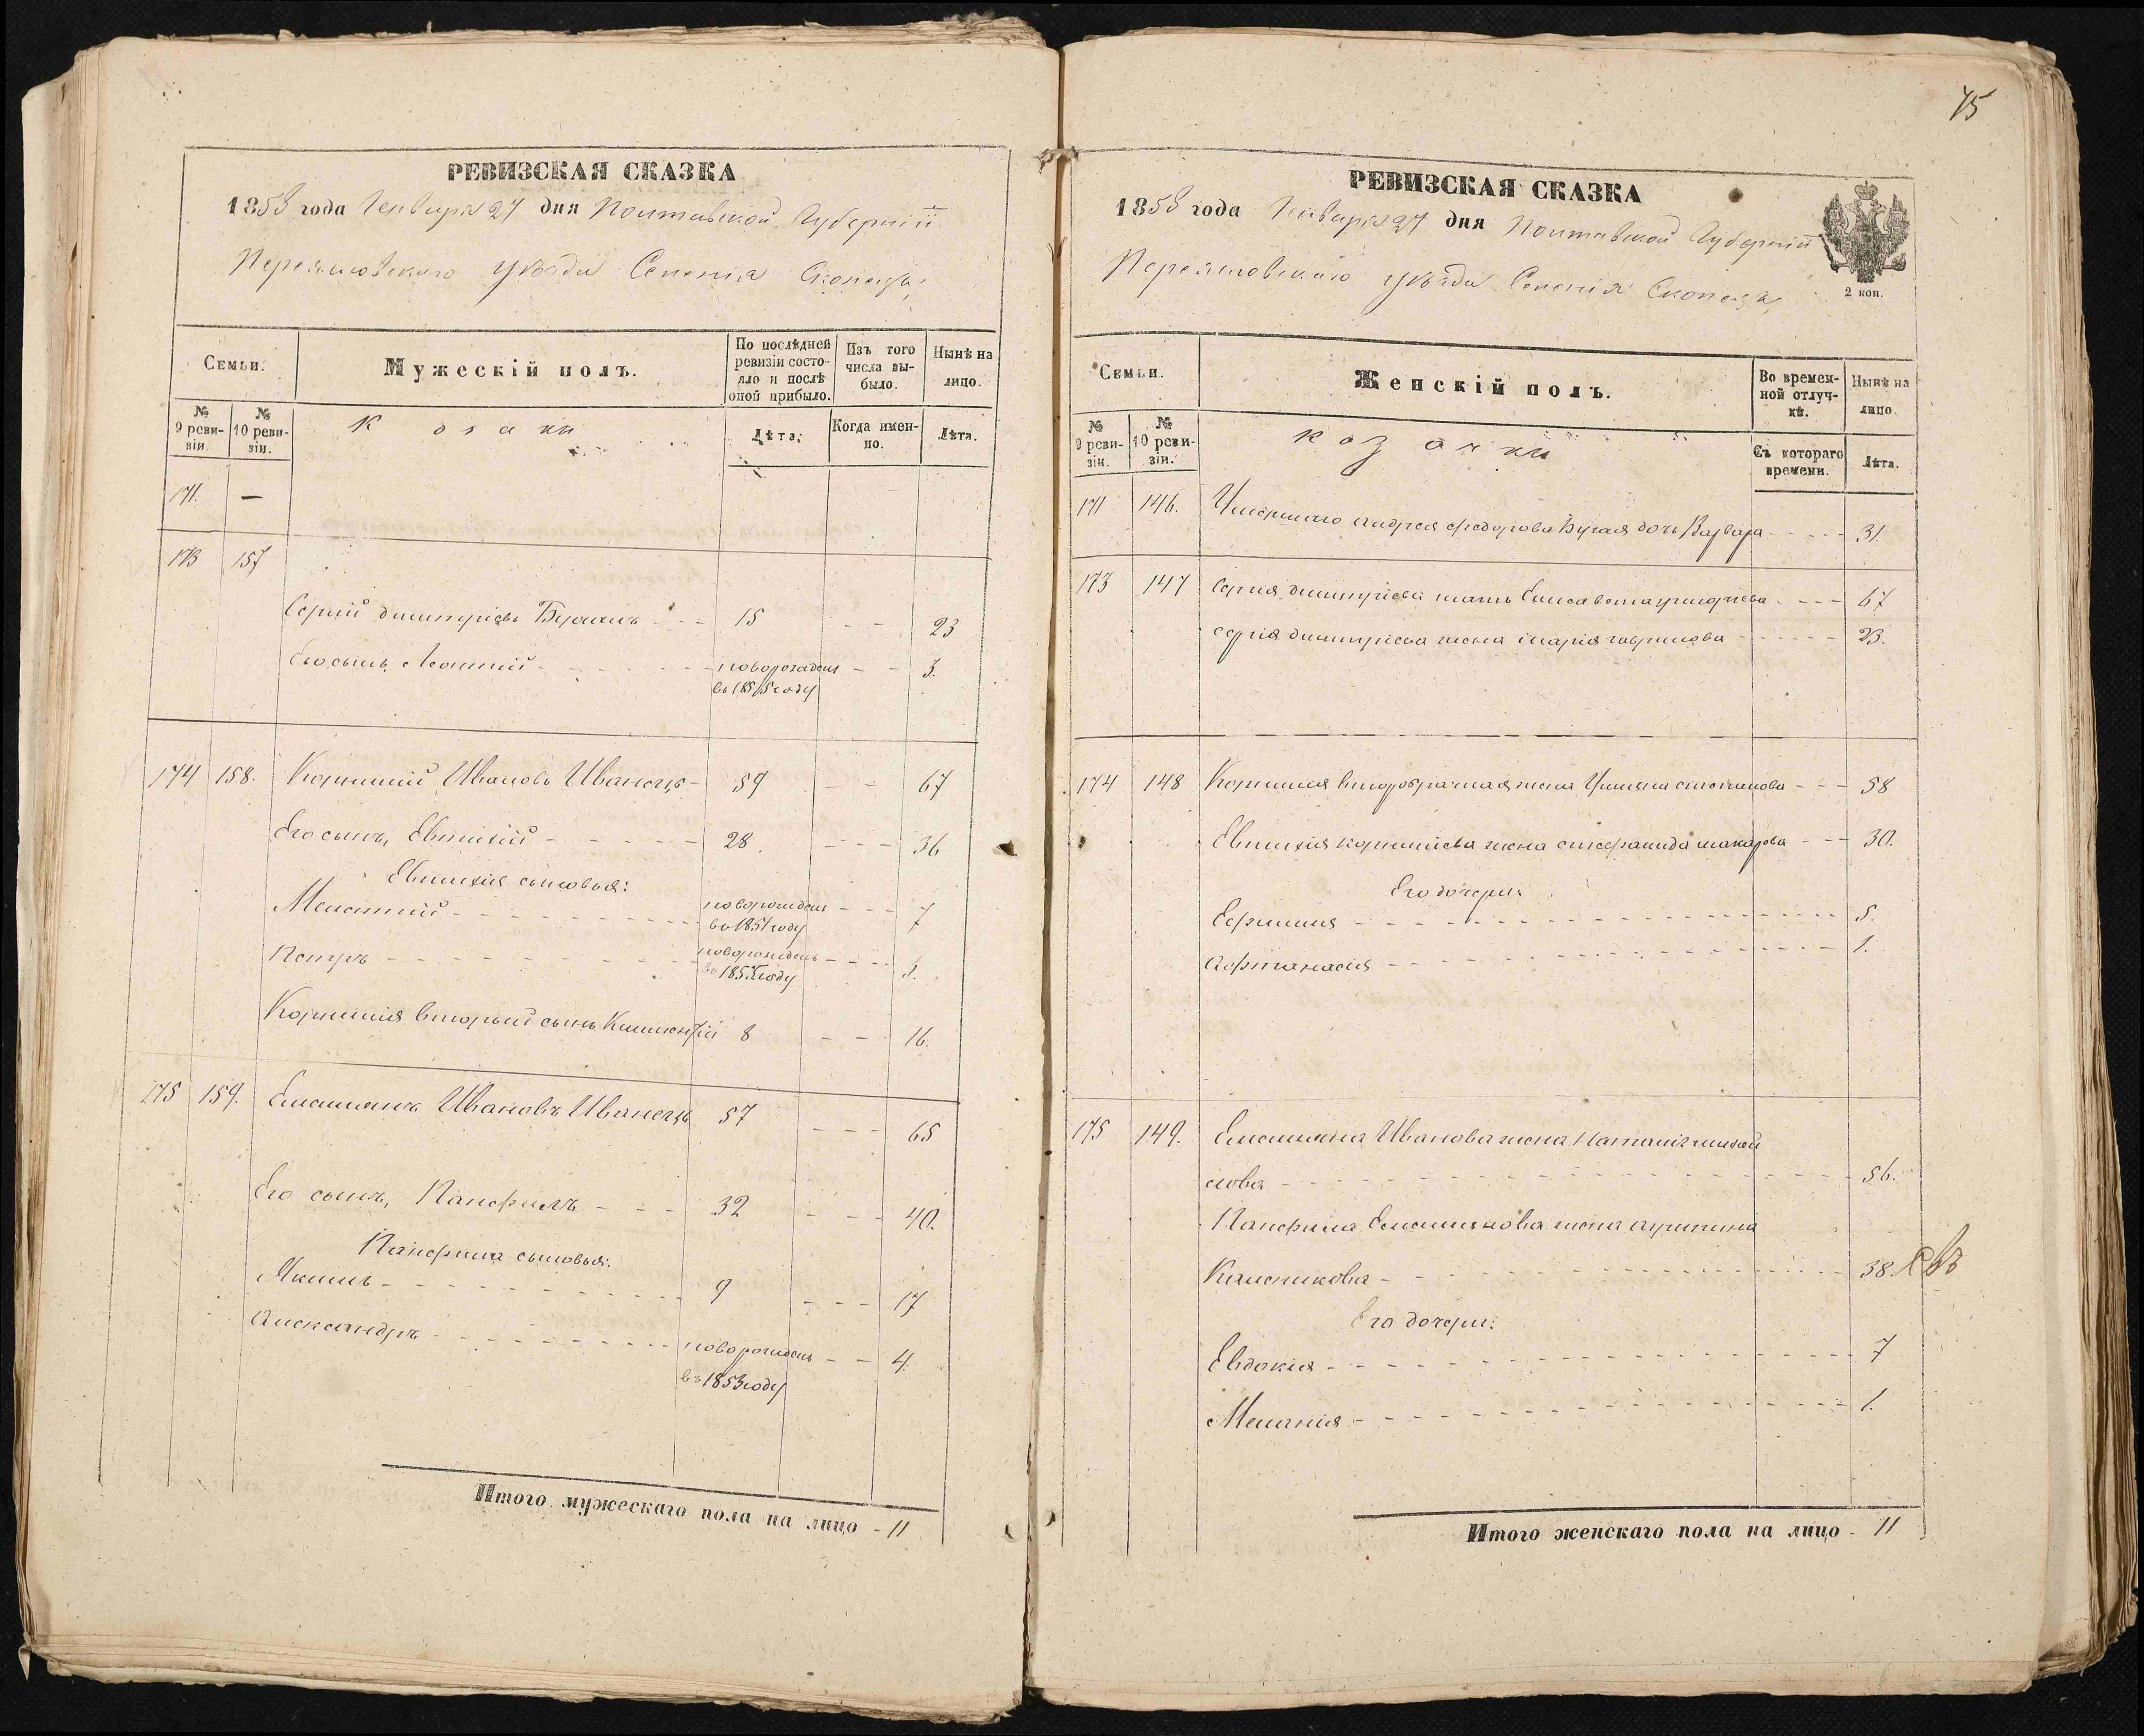 РЕВИЗСКАЯ СКАЗКА
1858 года Генваря 27 дня Полтавской Губерніи
Переяславского уѣзда Селенія Скопцы,
Семьи.
Мужескій полъ.
По послѣдней ревизіи состояло и послѣ оной прибыло.
Изъ того числа выбыло.
Нынѣ на лицо.
№ 9 ревизіи.
№ 10 ревизіи.
Козаки
Лѣта.
Когда именно.
Лѣта.
171. —
173 157
Сергій Дмитріевъ Бугай 15 - - 23
Его сынъ Леонтій - - новорожденъ - - 3.
въ 1855 году
174 158. Корнилій Ивановъ Иванецъ - 59 - - 67
Его сынъ, Евтихій - - 28. - - 36
Евтихія сыновья:
Мелетий - - новорожденъ - - 7
въ 1851 году
Петръ - - новорожденъ - - 3.
въ 1855 году
Корнилія вторый сынъ Климентій 8 - - 16.
175 159. Емельянъ Ивановъ Иванецъ 57 - - 65
Его сынъ, Панфилъ - - 32 - - 40.
Панфила сыновья:
Якимъ - - 9 - - 17
Александръ - - новорожденъ - - 4.
въ 1853 году
Итого мужескаго пола на лицо - 11
75
РЕВИЗСКАЯ СКАЗКА
1858 года Генваря 27 дня Полтавской Губерніи
Переяславского уѣзда Селенія Скопцы,
2 коп.
Семьи.
Женскій полъ.
Во временной отлучкѣ.
Нынѣ на лицо.
№ 9 ревизіи.
№ 10 ревизіи.
Козачки
Съ котораго времени.
Лѣта.
171 146. Умершаго Андрея Федорова Бугая дочь Варвара - - 31.
173 147 Сергія Дмитріева мать Елисавета Григорьева - - 67
Сергія Дмитріева жена Марія Гаврилова - - 23.
174 148 Корнилія второбрачная жена Ульяна Степанова - - 58
Евтихія Корниліева жена Стефанида Макарова - - 30.
Его дочери:
Ефимия - - 5.
Афтанасія - - 1.
175 149. Емельяна Иванова жена Наталія Михай
лова - - 56.
Панфила Емельянова жена Агрипина
Калсникова - - 38.
Его дочери:
Евдокия - - 7
Мелания - - 1.
Итого женскаго пола на лицо - 11